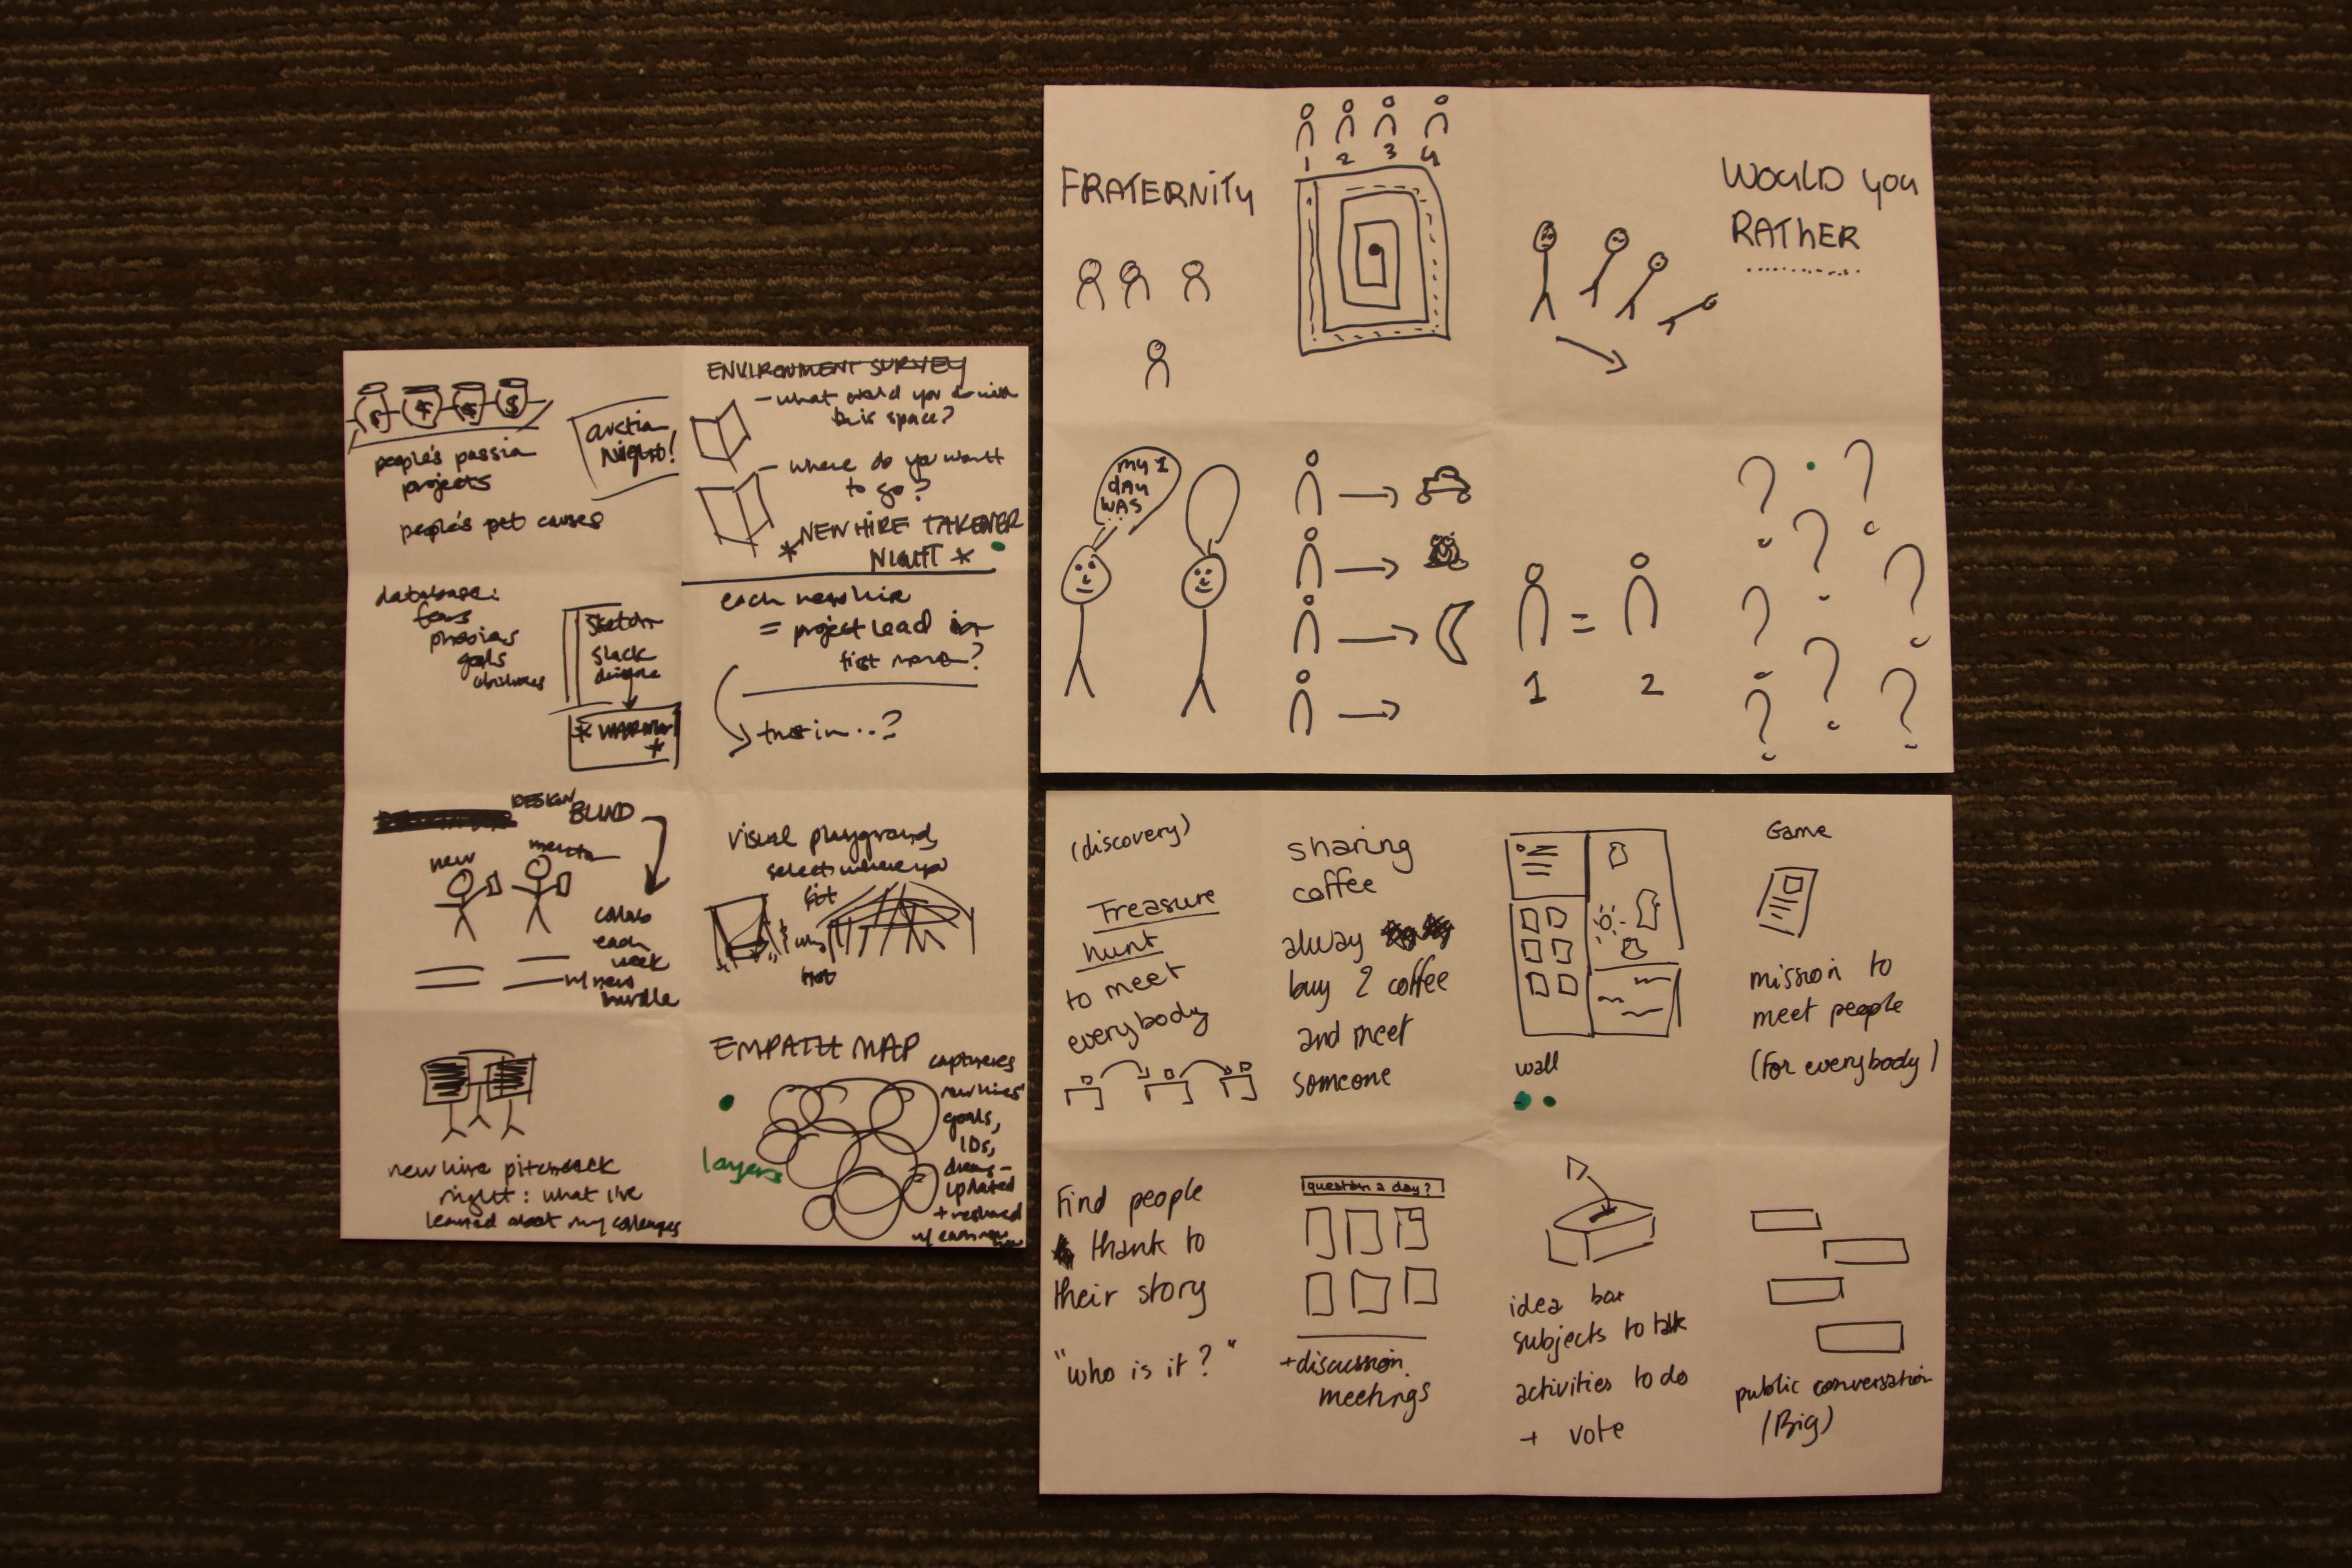 people's passion
projects
people's pet causes
auction
Night!
ENVIRONMENT SURVEY
- what would you do with
this space?
- where do you want
to go?
* NEW HIRE TAKEOVER
NIGHT *
database:
fears
phobias
goals
sketch
slack
each new hire
= project lead for
first
DESIGN BLIND
new
mentor
collab
each
week
w/ new
hurdle
visual playground,
select where you
fit
EMPATH MAP
captures
new hires'
goals,
IDs,
dreams -
updated
+ reshared
w/ each new
layers
new hire pitchback
night: what I've
learned about my colleagues
FRATERNITY
1 2 3 4
WOULD YOU
RATHER
............
MY 1
DAY
WAS
...
=
1 2
? ? ? ? ? ? ? ?
(discovery)
Treasure
hunt
to meet
everybody
sharing
coffee
alway
buy 2 coffee
and meet
someone
wall
Game
mission to
meet people
(for everybody)
Find people
thank to
their story
"who is it?"
question a day?
+discussion
meetings
idea box
subjects to talk
activities to do
+ vote
public conversation
(Big)